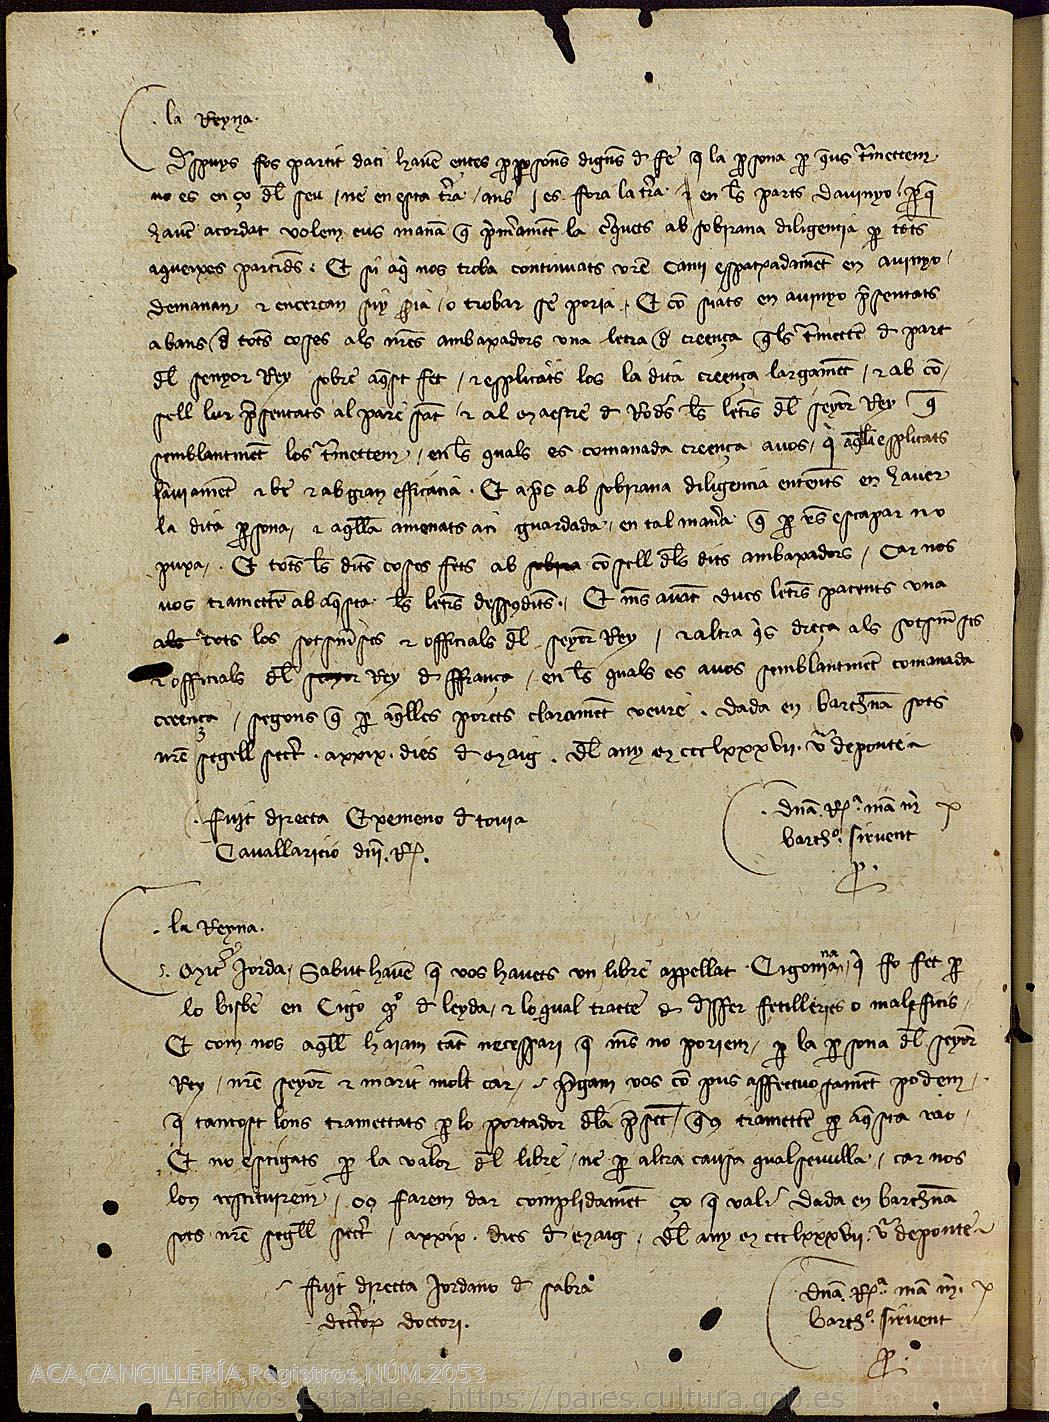 la Reyna.
Despuys fos partit daci havem entes per persones dignes de fe que la persona per que us trametem
no es en ço del seu / ne en esta terra / ans es fora la terra / en les parts davinyo / perque
havem acordat volem eus manam que primerament la cerquets ab sobirana diligencia per totes
aqueixes partides. Et si aqui nos troba continuats vostre cami espatxadament en avinyo /
demanan / e encercan si y sia / o trobar se poria. Et com siats en avinyo presentats
abans de totes coses als nostres ambaxadors una letra de creença quels trametem de part
del senyor Rey sobre aquest fet / e esplicats los la dita creença largament / e ab con
sell lur presentats al pare sant e al maestre de Rodes les letres del senyor Rey que
semblantment los trametem / en les quals es comanada creença a vos / esplicats
be e ab gran efficacia. Et apres ab sobirana diligencia entenets en haver
la dita persona / e aquella amenats aci guardada / en tal manera que per res escapar no
puxa. Et totes les dites coses fets ab consell dels dits ambaxadors / Car nos
vos trametem ab aquesta les letres dessusdites. Et mes avant dues letres patents una
a tots los sotsmeses e officials del senyor Rey / e altra ques dreça als sotsmeses
e officials del Rey de ffrança / en les quals es a vos semblantment comanada
creença / segons que per aquelles porets clarament veure. Dada en barchna sots
nostre segell secret. a xxix. dies de maig. del any mccclxxxvii. deponte
fuit directa Exemeno de tovia
Cavallaricio dni. R.
dna. Ra. man m
bartho. sirvent
p.
la Reyna.
Micer Jorda / Sabut havem que vos havets un libre appellat Cigonina / qui fo fet per
lo bisbe en Cigo de leyda / e lo qual tracte de desfer fetilleries o maleficis /
Et com nos aquell haiam tant necessari que mes no poriem / per la persona del senyor
Rey / nostre senyor e marit molt car / pregam vos com pus affectuosament podem /
que tantost lons trametats per lo portador dela present / que y trametem per aquesta rao /
Et no estigats per la valor del libre / ne per altra causa qualsevulla / car nos
lo us restituirem / o us farem dar complidament ço que val. Dada en barchna
sots nostre segell secret / a xxix. dies de maig / del any mccclxxxvii. deponte
fuit directa Jordano de sabra
decretorum doctori.
dna. Ra. man m
bartho. sirvent
p.
ACA,CANCILLERÍA,Registros,NÚM.2053
Archivos Estatales, https://pares.cultura.gob.es